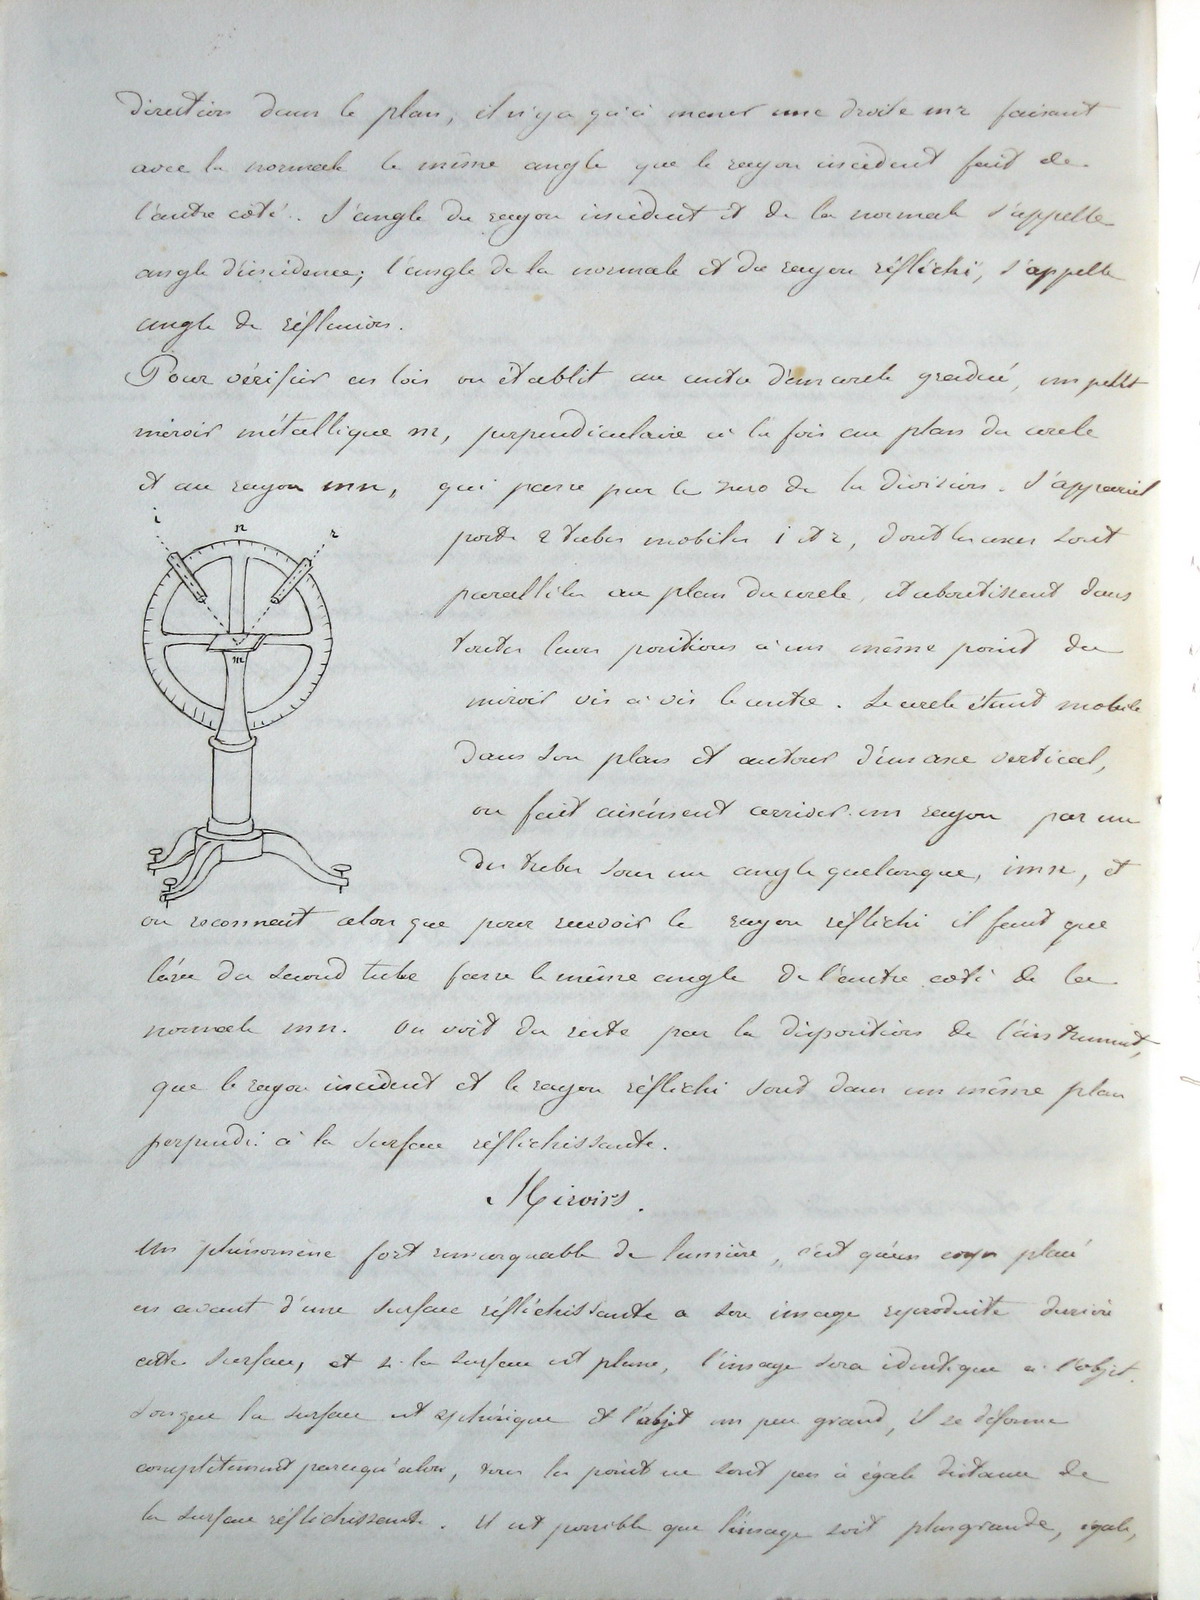 direction dans le plan, il n'y a qu'à mener une droite mr faisant
avec la normale le même angle que le rayon incident fait de
l'autre côté. L'angle du rayon incident et de la normale s'appelle
angle d'incidence; l'angle de la normale et du rayon réfléchi, s'appelle
angle de réflexion.
Pour vérifier ces lois on établit au centre d'un cercle gradué, un petit
miroir métallique m, perpendiculaire à la fois au plan du cercle
et au rayon mn, qui passe par le zero de la division. L'appareil
i n r
porte 2 tubes mobiles i et r, dont les axes sont
parallèles au plan du cercle, et aboutissent dans
toutes leurs positions à un même point du
m
miroir vis à vis le centre. Le cercle étant mobile
dans son plan et autour d'un axe vertical,
on fait aisément arriver un rayon par un
des tubes sous un angle quelconque, imn, et
on reconnait alors que pour recevoir le rayon réfléchi il faut que
l'axe du second tube fasse le même angle de l'autre coté de la
normale mn. On voit du reste par la disposition de l'instrument,
que le rayon incident et le rayon réfléchi sont dans un même plan
perpendi: à la surface réfléchissante.
Miroirs.
Un phénomène fort remarquable de lumière, c'est qu'un corps placé
en avant d'une surface réfléchissante a son image reproduite derrière
cette surface, et si la surface est plane, l'image sera identique à l'objet.
Lorsque la surface est sphérique et l'objet un peu grand, il se déforme
complètement parcequ'alors, tous les point ne sont pas à égale distance de
la surface réfléchissante. Il est possible que l'image soit plus grande, égale,